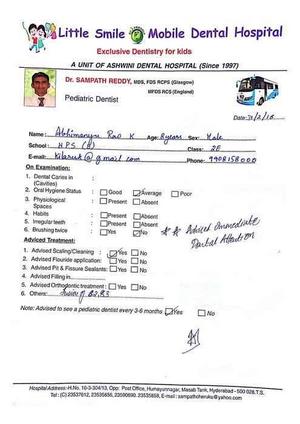 Little Smile Mobile Dental Hospital
Exclusive Dentistry for kids
A UNIT OF ASHWINI DENTAL HOSPITAL (Since 1997)
Dr. SAMPATH REDDY, MDS, FDS RCPS (Glasgow)
MFDS RCS (England)
Pediatric Dentist
Name: Abhimanyu Rao K Age: 8 years Sex: Male
School: HPS (R) Class: 2E
E-mail: @gmail.com Phone: 9908158000
On Examination:
1. Dental Caries in :
(Cavities)
2. Oral Hygiene Status : Good Average Poor
3. Physiological : Present Absent
Spaces
4. Habits : Present Absent
5. Irregular teeth : Present Absent
6. Brushing twice : Yes No
** Advised Immediate
Dental Attention
Adviced Treatment:
1. Advised Scaling/Cleaning : Yes No
2. Advised Flouride application: Yes No
3. Advised Pit & Fissure Sealants: Yes No
4. Advised Filling in
5. Advised Orthodontic treatment : Yes No
6. Others: of
Note: Advised to see a pediatric dentist every 3-6 months Yes No
Hospital Address:-H.No. 10-3-304/13, Opp: Post Office, Humayunnagar, Masab Tank, Hyderabad - 500 028.T.S.
Tel: (C) 23537612, 23535656, 23590690, 23535858, E-mail : sampathcheruku@yahoo.com